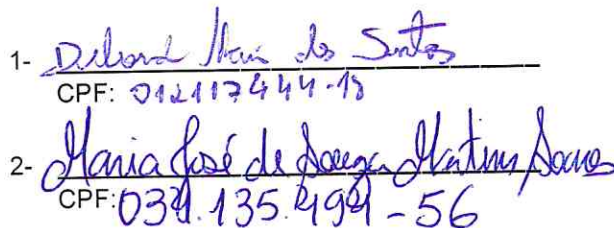 1- Debora Maria dos Santos
CPF: 012117444-18
2- Maria José de Souza Martins Soares
CPF: 034.135.494-56